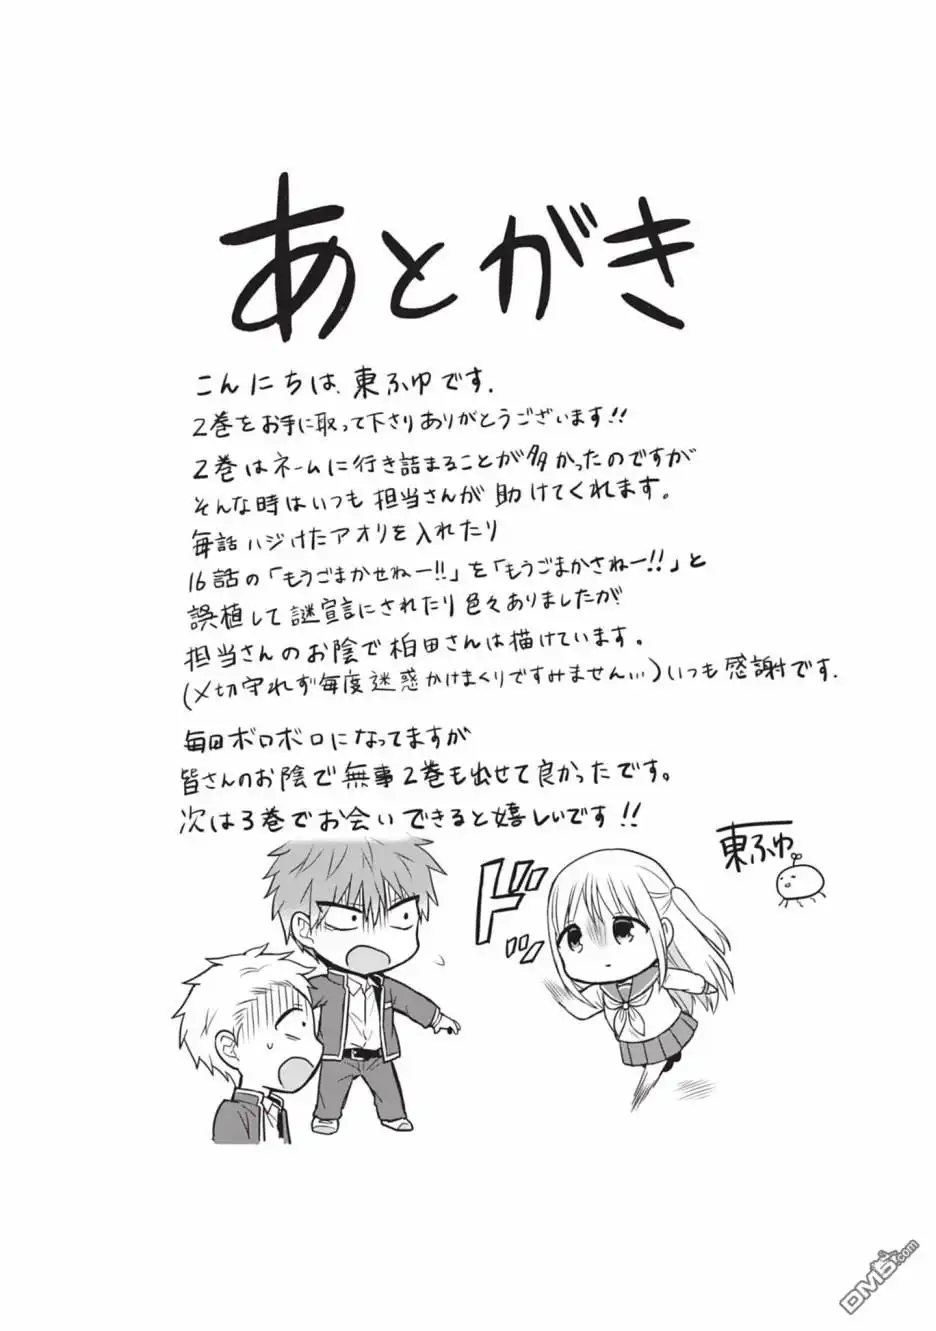 あとがき
こんにちは、東ふゆです.
2巻をお手に取って下さりありがとうございます!!
2巻はネームに行き詰まることが多かったのですが
そんな時はいつも担当さんが助けてくれます。
毎話ハジけたアオリを入れたり
16話の「もうごまかせねー!!」を「もうごまかさねー!!」と
誤植して謎宣言にされたり色々ありましたが
担当さんのお陰で柏田さんは描けています。
(〆切守れず毎度迷惑かけまくりですみません…)いつも感謝です.
毎回ボロボロになってますが
皆さんのお陰で無事2巻も出せて良かったです。
次は3巻でお会いできると嬉しいです!!
東ふゆ
ドドド
DM5.com